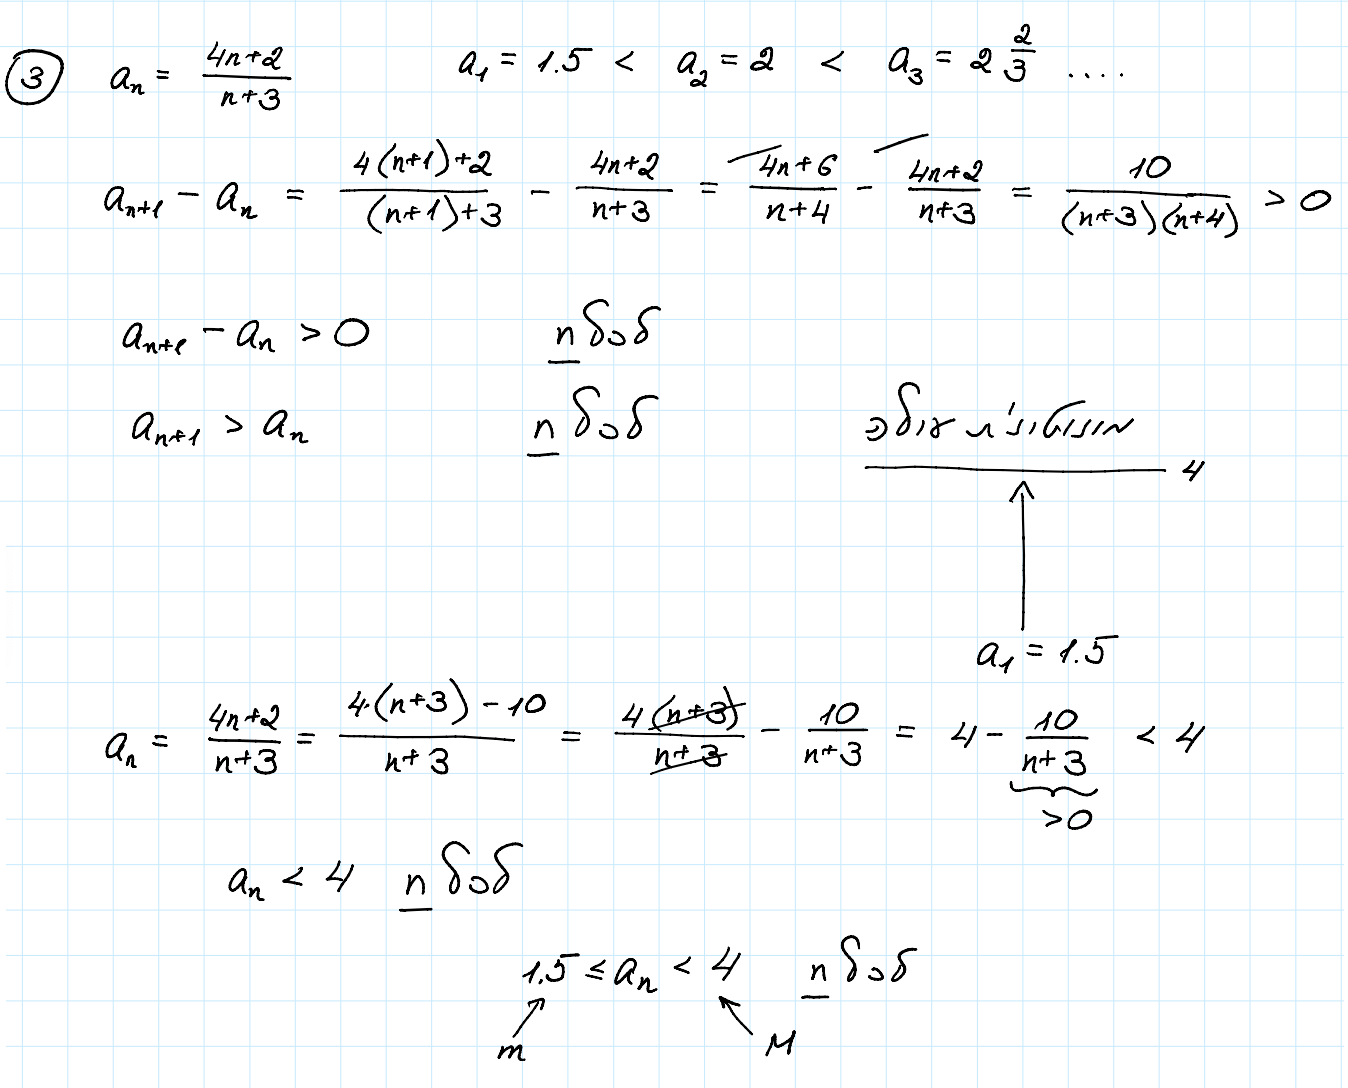 ③ aₙ = (4n+2)/(n+3)   a₁ = 1.5 < a₂ = 2 < a₃ = 2 2/3 ....
aₙ₊₁ - aₙ = (4(n+1)+2)/((n+1)+3) - (4n+2)/(n+3) = (4n+6)/(n+4) - (4n+2)/(n+3) = 10/((n+3)(n+4)) > 0
aₙ₊₁ - aₙ > 0   לכל n
aₙ₊₁ > aₙ   לכל n
מונוטונית עולה
4
a₁ = 1.5
aₙ = (4n+2)/(n+3) = (4·(n+3) - 10)/(n+3) = 4(n+3)/(n+3) - 10/(n+3) = 4 - 10/(n+3) < 4
>0
aₙ < 4   לכל n
1.5 ≤ aₙ < 4   לכל n
m   M